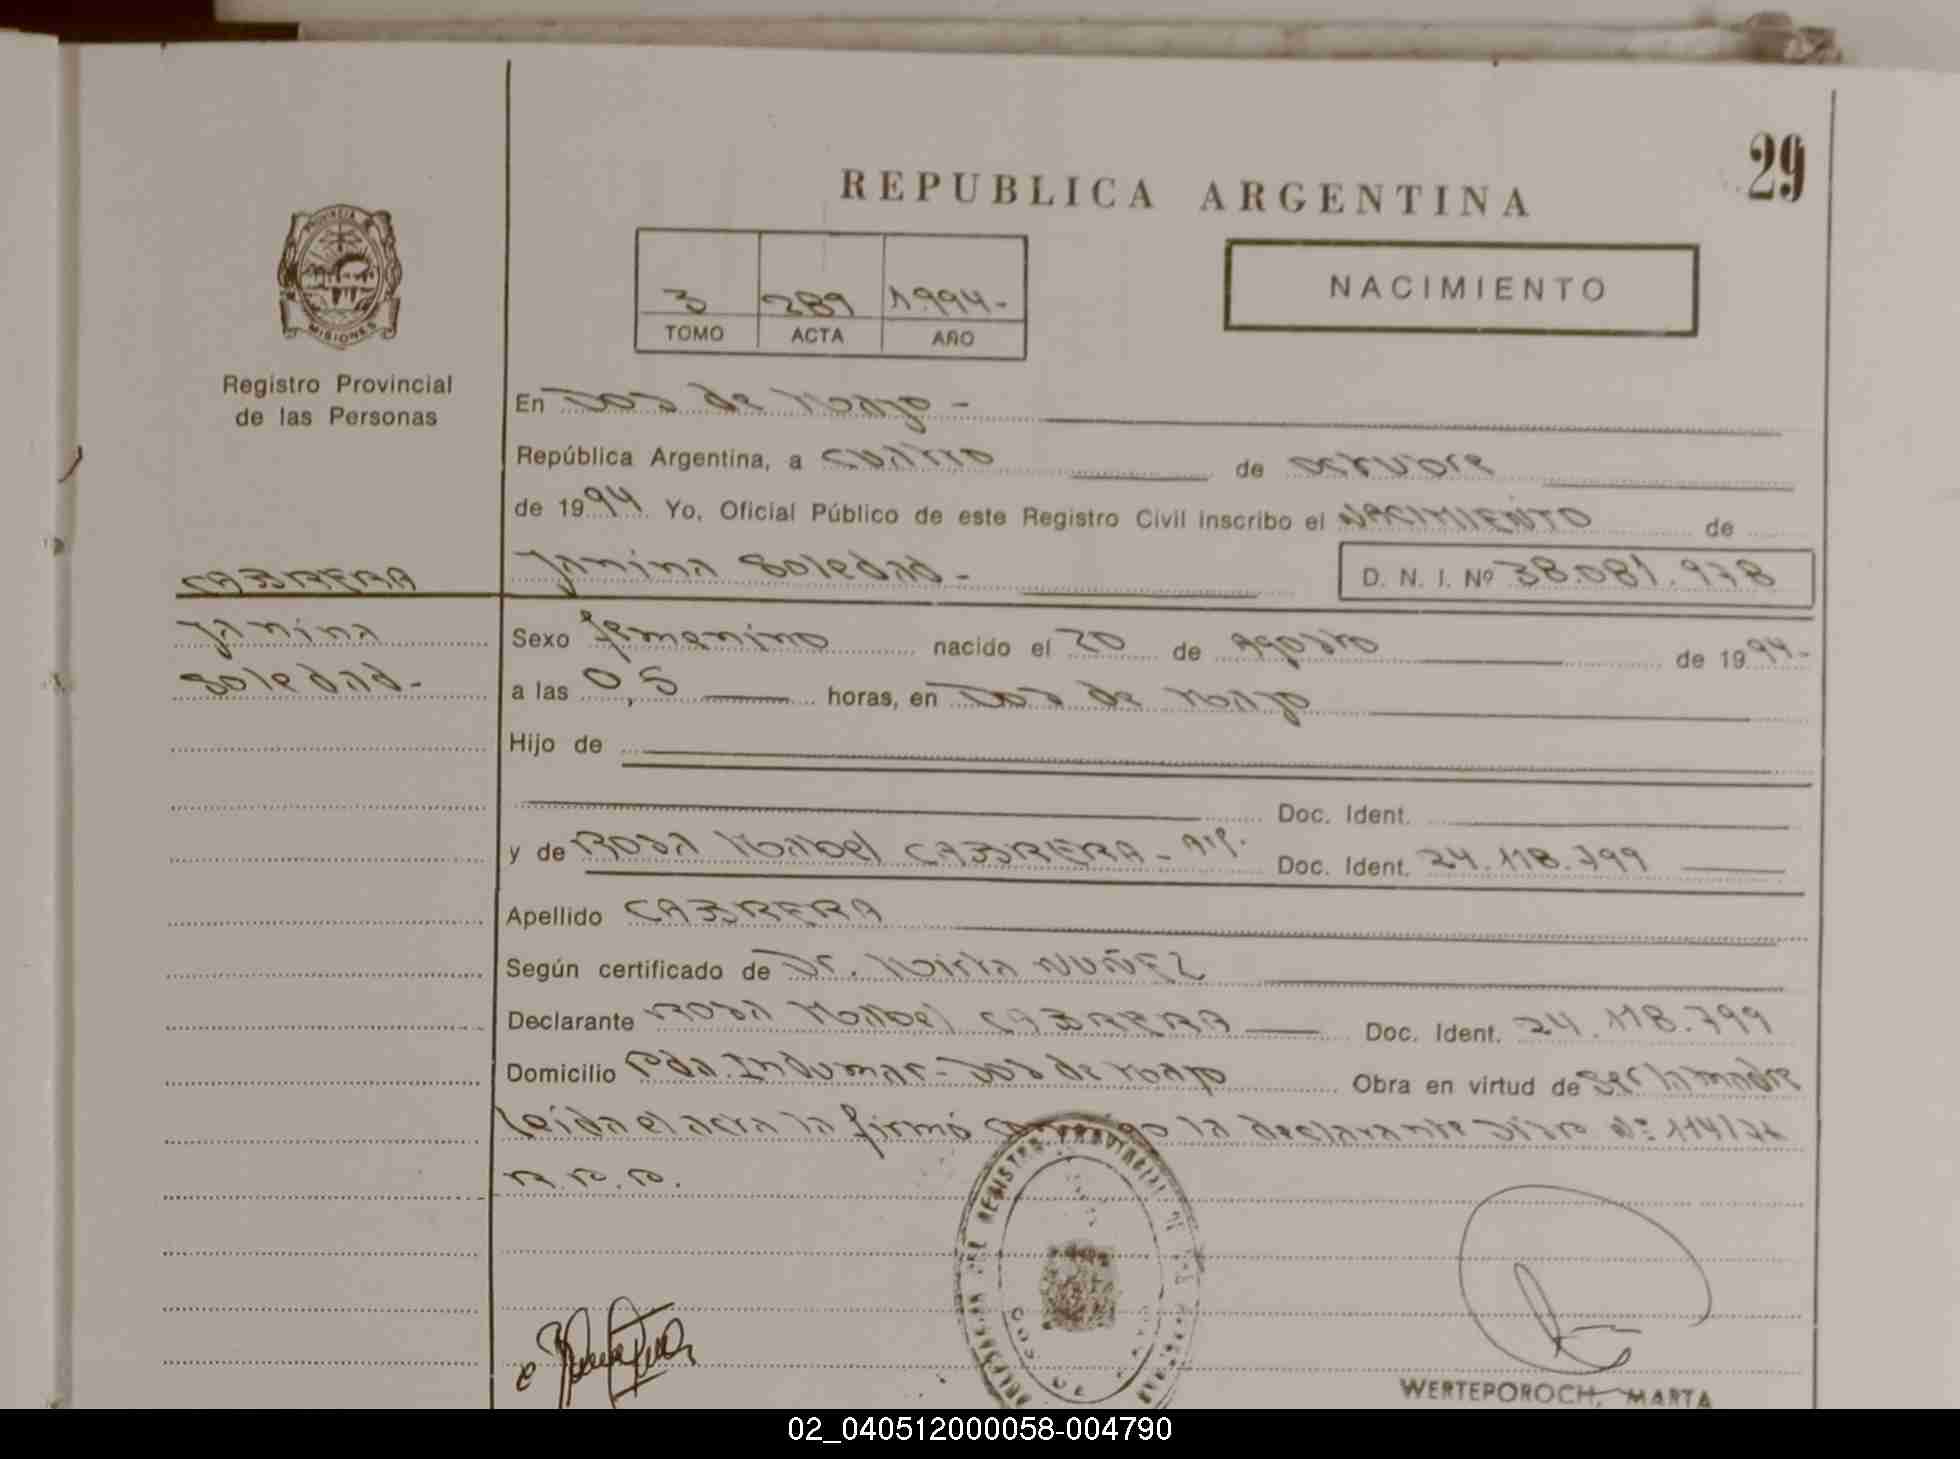 29
REPUBLICA ARGENTINA
PROVINCIA
MISIONES
Registro Provincial
de las Personas
3 289 1.994-
TOMO ACTA AÑO
NACIMIENTO
En Dos de Mayo -
República Argentina, a cuatro de octubre
de 1994 Yo, Oficial Público de este Registro Civil inscribo el NACIMIENTO de
CABRERA Janina Soledad- D. N. I. Nº 38.081.978
Janina
Soledad-
Sexo femenino nacido el 20 de Agosto de 1994-
a las 0,5 horas, en Dos de Mayo
Hijo de
Doc. Ident.
y de Rosa Mabel CABRERA- Arg. Doc. Ident. 24.118.799
Apellido CABRERA
Según certificado de Dr. Mirta NUÑEZ
Declarante Rosa Mabel CABRERA Doc. Ident. 24.118.799
Domicilio Pda. Indumar- Dos de Mayo Obra en virtud de ser la madre
Leida el acta la firmó conmigo la declarante Disp Nº 114/76
R.P.P.
DELEGACION DEL REGISTRO PROVINCIAL DE LAS PERSONAS
DOS DE MAYO
WERTEPOROCH, MARTA
02_040512000058-004790